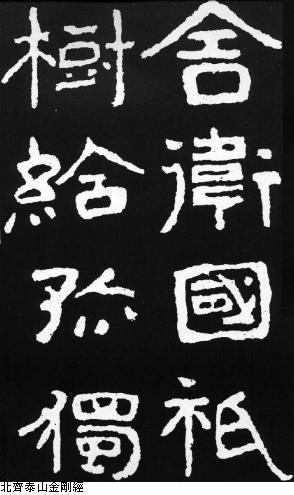 舍衛國祇
樹給孤獨
北齊泰山金剛經